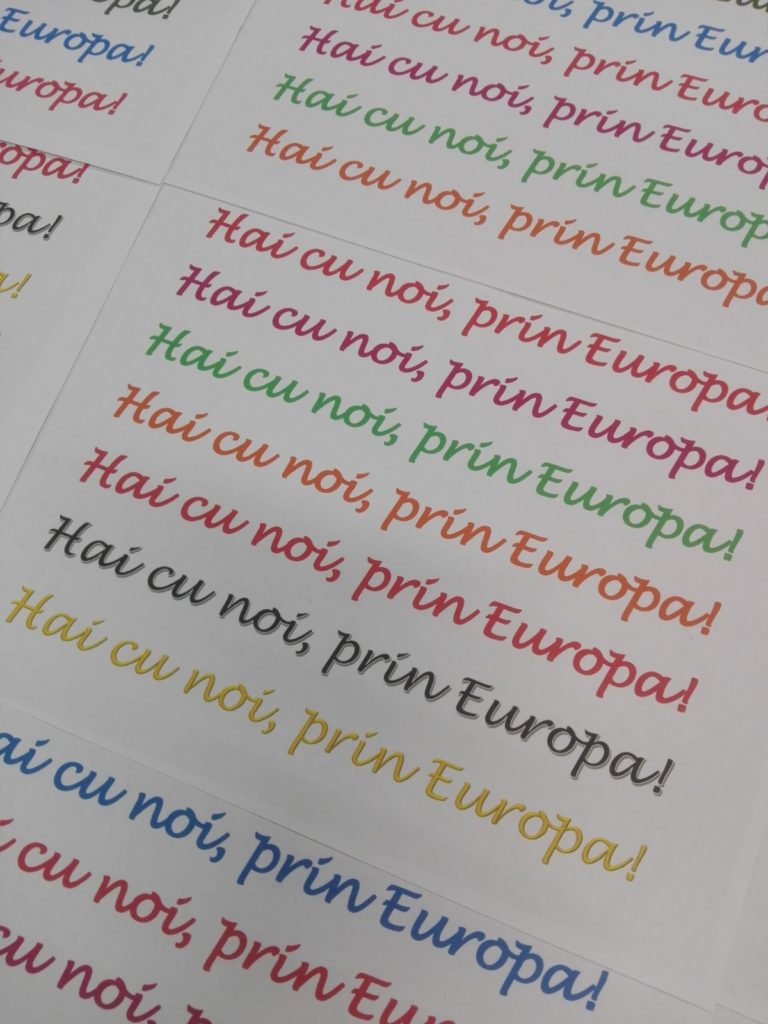 opa!
Europa!
Europa!
ropa!
pa!
a!
noi, prin Eur
Hai cu noi, prin Euro
Hai cu noi, prin Europ
Hai cu noi, prin Europ
Hai cu noi, prin Europa
Hai cu noi, prin Europa!
Hai cu noi, prin Europa!
Hai cu noi, prin Europa!
Hai cu noi, prin Europa!
Hai cu noi, prin Europa!
Hai cu noi, prin Europa!
Hai cu noi, prin Europa!
ai cu noi, prin Europa!
i cu noi, prin Europa!
cu noi, p